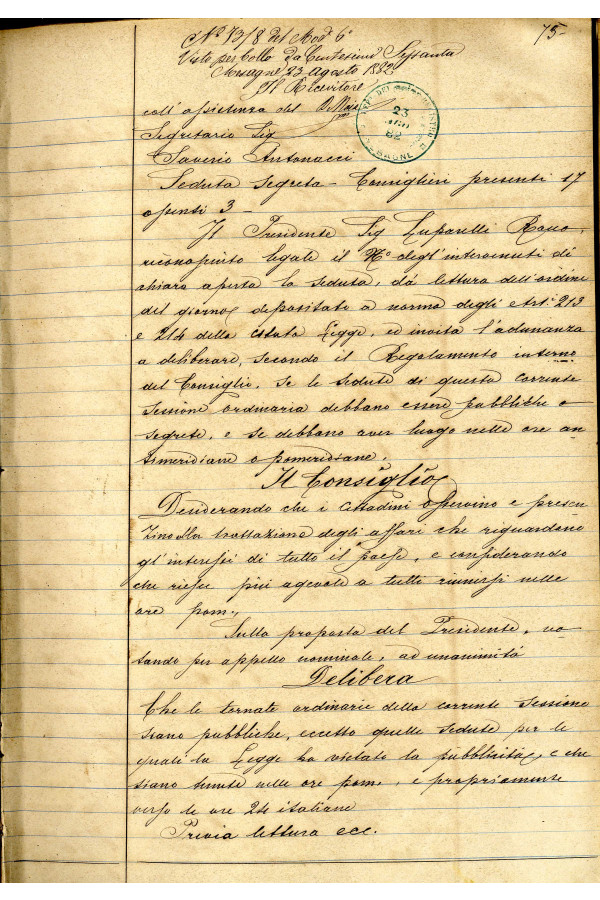 75-
N.º 1318 del Mod. 6º
Visto per bollo da Centesimi Sessanta
Mesagne 23 agosto 1882
Il Ricevitore
coll'assistenza del De
Segretario Sig
Saverio Antonacci
23
82
Seduta segreta - Consiglieri presenti 17
assenti 3 -
Il Presidente Sig Luparelli Rocco,
riconosciuto legale il Nº degl'intervenuti di
chiara aperta la seduta, dà lettura dell'ordine
del giorno, depositato a norma degli Art: 213
e 214 della citata Legge, ed invita l'adunanza
a deliberare, secondo il Regolamento interno
del Consiglio, se le sedute di questa corrente
sessione ordinaria debbano essere pubbliche o
segrete, e se debbano aver luogo nelle ore an
timeridiane o pomeridiane.
Il Consiglio
Desiderando che i cittadini osservino e presen
zino alla trattazione degli affari che riguardono
gl'interessi di tutto il paese, e considerando
che riesce più agevole a tutti riunirsi nelle
ore pom.,
Sulla proposta del Presidente, vo-
tando per appello nominale, ad unanimità
Delibera
Che le tornate ordinarie della corrente sessione
siano pubbliche, eccetto quelle sedute per le
quali la Legge ha vietato la pubblicità, e che
siano tenute nelle ore pom., e propriamente
verso le ore 24 italiane
Previa lettura ecc.